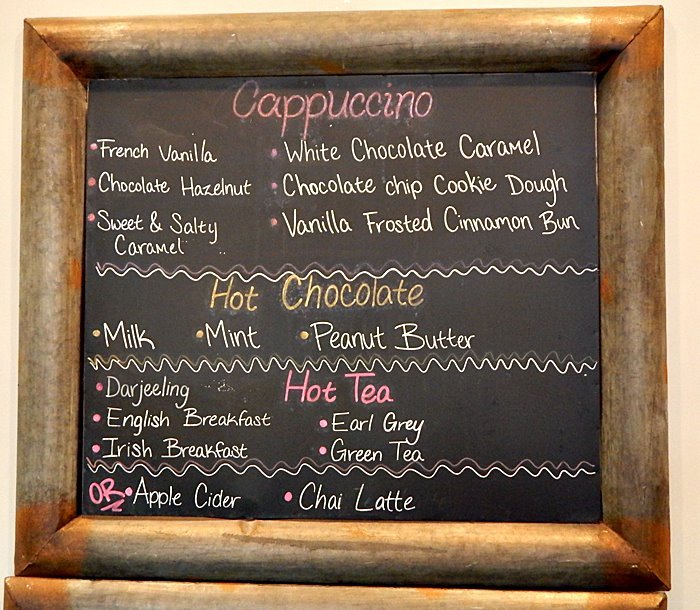 Cappuccino
• French Vanilla • White Chocolate Caramel
• Chocolate Hazelnut • Chocolate chip Cookie Dough
• Sweet & Salty • Vanilla Frosted Cinnamon Bun
Caramel
Hot Chocolate
• Milk • Mint • Peanut Butter
• Darjeeling Hot Tea
• English Breakfast • Earl Grey
• Irish Breakfast • Green Tea
OR • Apple Cider • Chai Latte